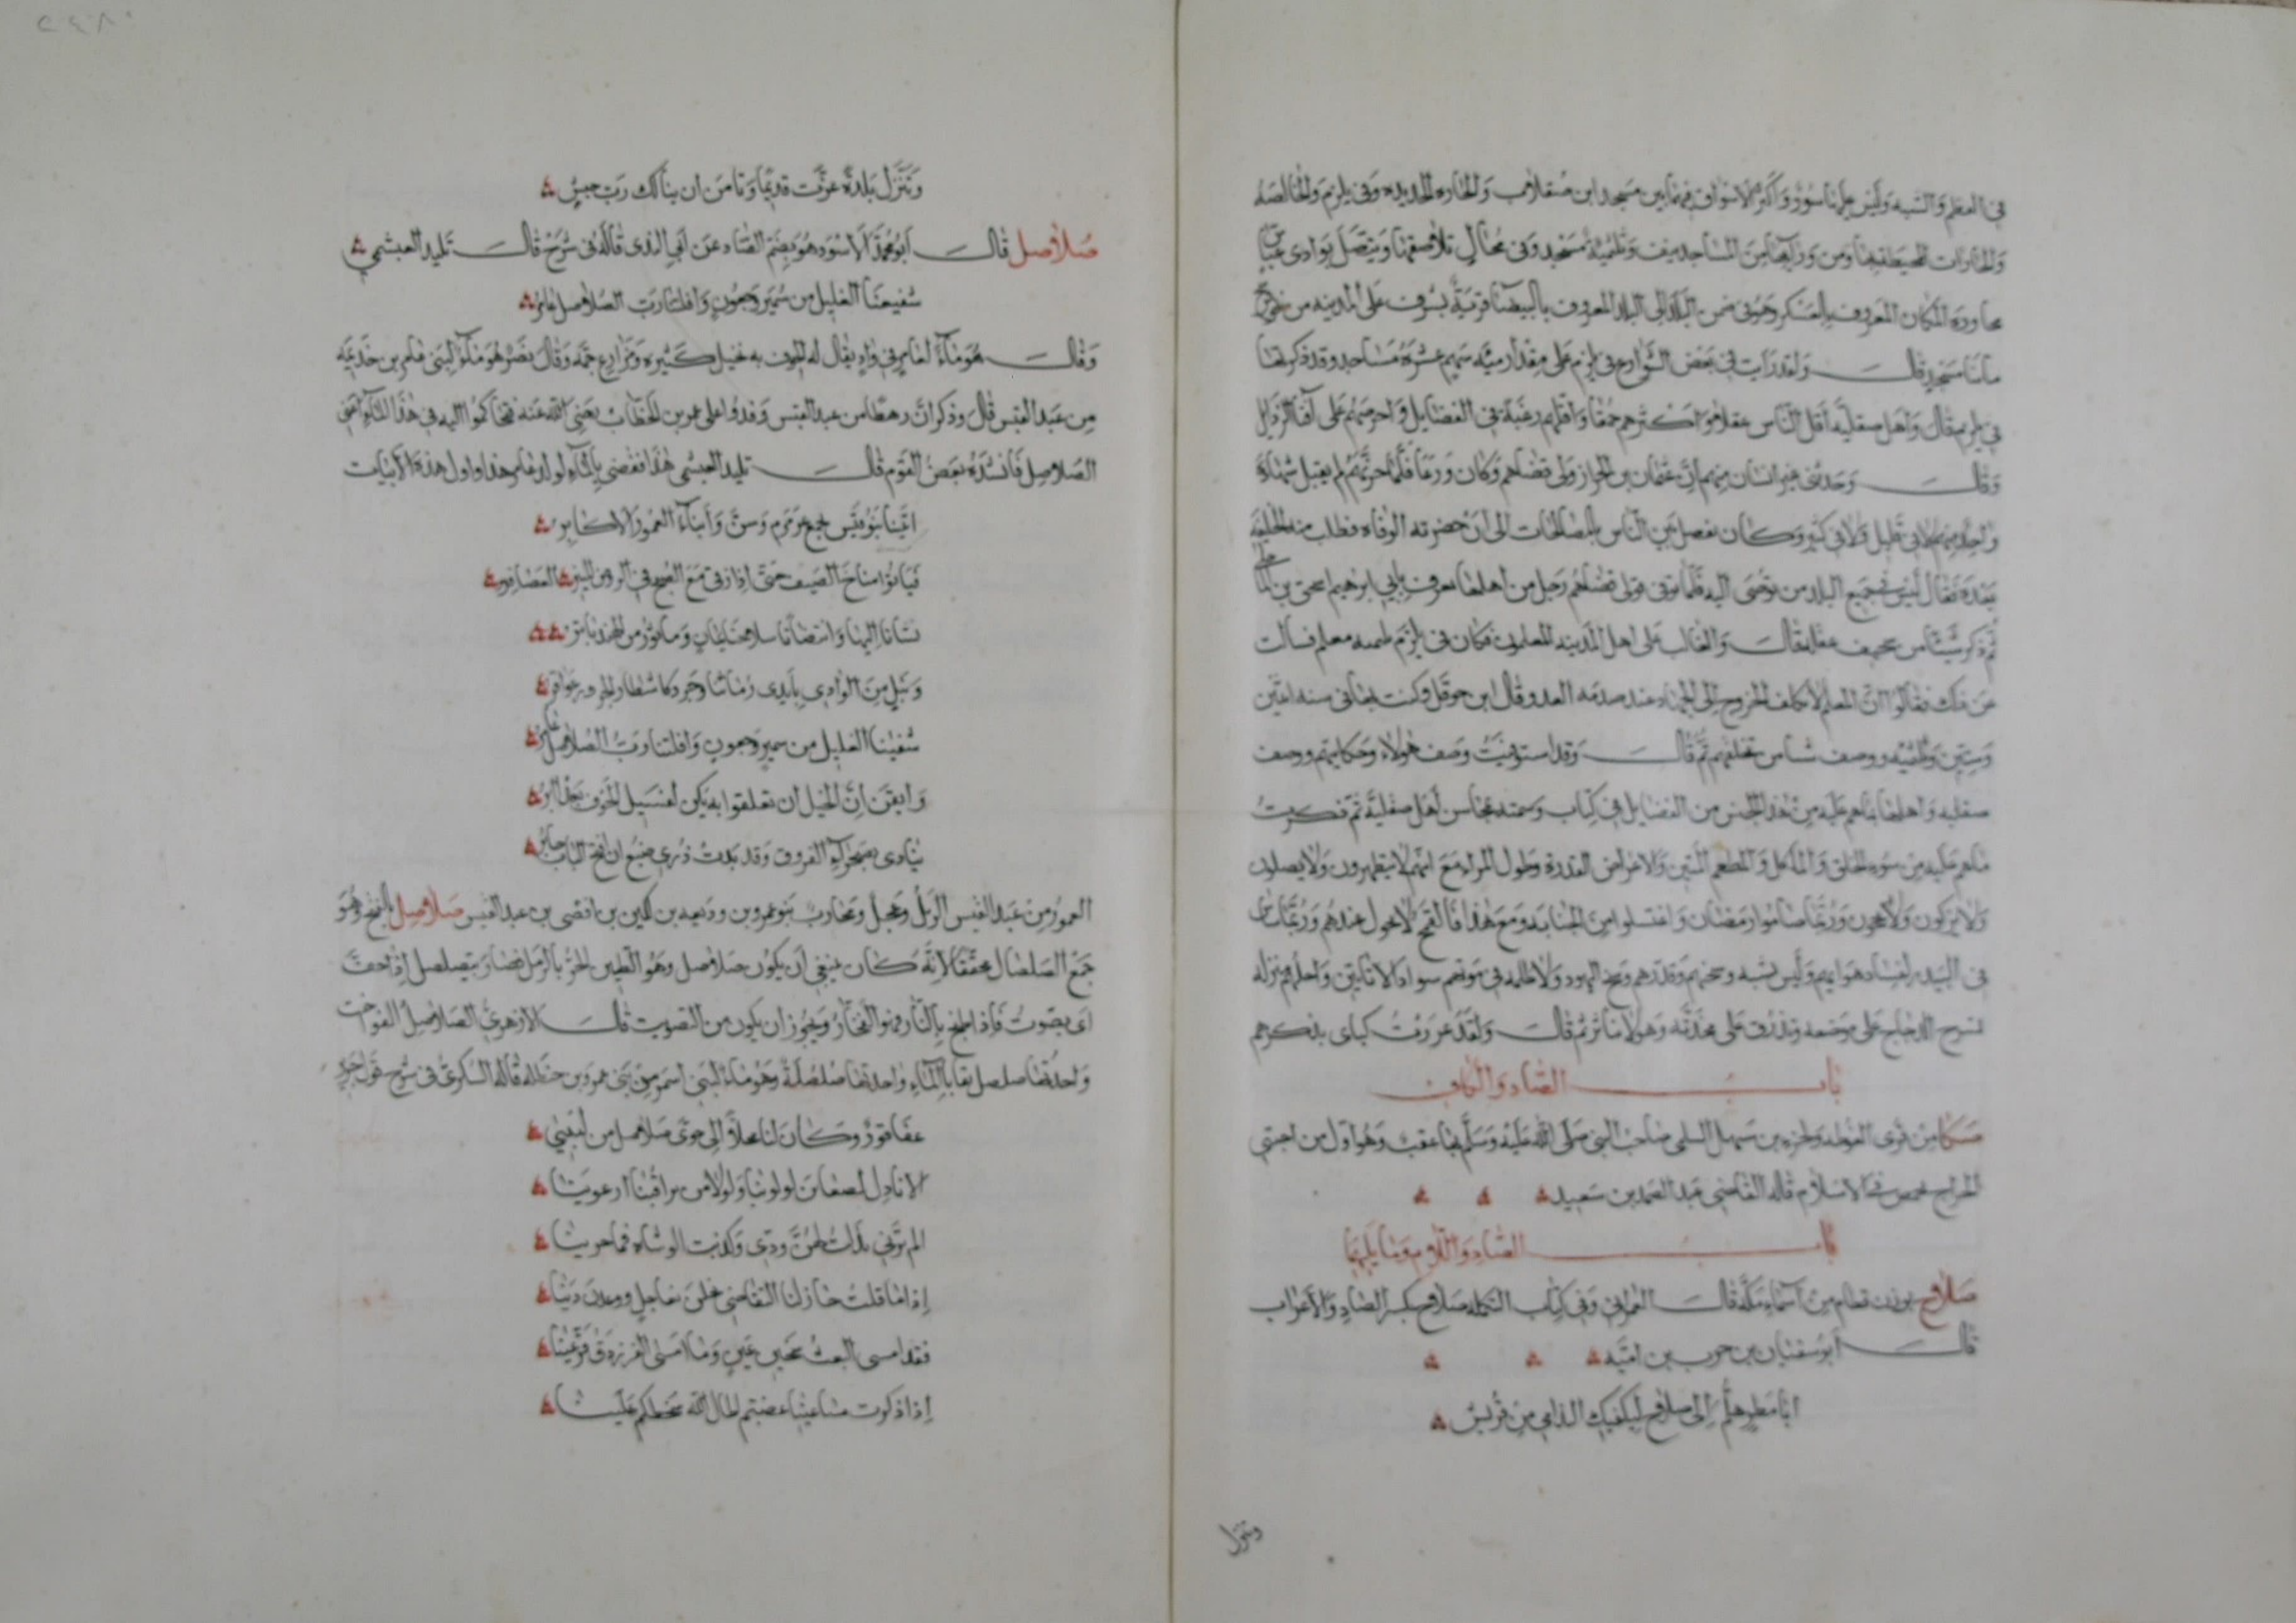 في العظم والشبه وليس عليها سور واكثر الاسواق فيما بين مسجد ابن صقلاب والحاره الجديده وفي بلرم والخالصه
والحارات المحيطه بها ومن وراء من المساجد نيف وثلثمئة مسجد وفي محال تلاصقها وتتصل بوادي عباس
مجاورة المكان المعروف بالعسكر وهو في ضمن البلد الى البلد المعروف بالبيضا قرية تشرف على المدينه من نحو
مأتا مسجد قال ولقد رايت في بعض الشوارع في بلرم على مقدار رميه سهم عشرة مساجد وقد ذكرتها
في بلرم قال واهل صقليه اقل الناس عقلا واكثرهم حمقا واقلهم رغبة في الفضايل واحرصهم على اقتنا الرذايل
وقال وحدثني غير انسان منهم ان عثمان بن الخراز ولى قضاهم وكان ورعا فلما جربهم لم يقبل شهادة
واحد منهم لا في قليل ولا في كثير وكان يفصل بين الناس بالمصالحات الى ان حضرته الوفاه فطلب منه الخليفه
بعده فقال ليس في جميع البلد من يوصى اليه فلما توفى تولى قضاهم رجل من اهلها يعرف بابي ابرهيم اسحق بن الماحلي
ثم ذكر شيئا من سخيف عقله قال والغالب على اهل المدينه المعلمون فكان في بلرم ثلثمئه معلم فسالت
عن ذلك فقالوا ان المعلم لا يكلف الخروج الى الجهاد عند صدمه العدو وقال ابن حوقل وكنت بها في سنه اثنين
وستين وثلثمئه ووصف شيا من تخلفهم ثم قال وقد استوفيت وصف هولاء وحكاياتهم ووصف
صقليه واهلها بما هم عليه من هذا الجنس من الفضايل في كتاب وسمته بمحاسن اهل صقلية ثم ذكرت
ما هم عليه من سوء الخلق والماكل والمطعم المنتن والاعراض القذرة وطول المراء مع انهم لا يتطهرون ولا يصلون
ولا يزكون ولا يحجون وربما صاموا رمضان واغتسلوا من الجنابة ومع هذا فالقمح لا يحول عندهم وربما ساس
في البيدر لفساد هوايهم وليس يشبه وسخهم وقذرهم وسخ اليهود ولا ظلمه بيوتهم سواد الاتاتين واجلهم منزلة
تسرح الدجاج على موضعه وتذرق على مخدته وهو لا يتاثر ثم قال ولقد عررت كتابي بذكرهم
باب الصاد والكاف
صكا من قرى الغوطه ولجزء بن سهيل السلمي صاحب النبي صلى الله عليه وسلم بها عقب وهو اول من اجتبى
الخراج بحمص في الاسلام قاله القاضي عبد الصمد بن سعيد
باب الصاد واللام وما يليهما
صلاح بوزن قطام من اسماء مكة قال العمراني وفي كتاب التكمله صلاح بكسر الصاد والاعراب
قال ابو سفيان بن حرب بن اميه
ابا مطر هلم الى صلاح ليكفيك الندامى من قريش
وتنزل
وتنزل بلدة عزت قديما وتامن ان ينالك رب جيش
صلاصل قال ابو محمد الاسود هو بضم الصاد عن ابي الندى قاله في شرح قال تليد العبشمي
شفينا الغليل من سمير وجعون وافلتنا رب الصلاصل عامر
وقال هو ماء لعامر في واد يقال له الجوف به نخيل كثيره ومزارع جمه وقال نصر هو ماء لبني عامر بن جذيمه
من عبد القيس قال وذكر ان رهطا من عبد القيس وفدوا على عمر بن الخطاب رضي الله عنه فتحاكموا اليه في هذا الماء اعني
الصلاصل فانشده بعض القوم قال تليد العبشمي هذا فقضى بالماء لولد عامر هذا واول هذه الابيات
اتينا بنو قيس بجمع عرمرم وشن وابناء العمور الاكابر
فباتوا مناخ الصيف حتى اذا زقى مع الصبح في الروض المنير العصافر
نشانا اليها وانتضينا سلاحنا يمان وماثور من الهند باتر
ونبل من الوادي بايدي رماتنا وجرد كاشطار الجزور عواقر
شفينا الغليل من سمير وجعون وافلتنا رب الصلاصل عامر
وايقن ان الخيل ان تعلقوا به يكن لفسيل الخوف بعدا ابر
ينادي بصحراء الفروق وقد بدت ذرى ضبع ان افتح الباب جابر
العمور من عبد القيس الديل وعجل ومحارب بنو عمرو بن وديعه بن لكيز بن افصى بن عبد القيس صلاصل بالفتح وهو
جمع الصلصال مخففا لانه كان ينبغي ان يكون صلاصيل وهو الطين الحر بالرمل فصار يتصلصل اذا جف
اى يصوت فاذا طبخ بالنار فهو الفخار ويجوز ان يكون من التصويت قال الازهري الصلاصل الفواخت
واحدتها صلصل بقايا الماء واحدتها صلصلة وهو ماء لبني اسمر من بني عمرو بن حنظله قاله السكري في شرح قول جرير
عفا قو وكان لنا محلا الى جوى صلاصل من لبينى
الا ناد الظعاين لو لوينا ولولا من يراقبنا ارعوينا
الم ترني بذلت لهن ودي وكذبت الوشاه فما جزينا
اذا ما قلت حان لنا التقاضي بخلن بعاجل ووعدن دينا
فقد امسى البعيث سخين عين وما امسى الفرزدق قر عينا
اذا ذكرت مساعينا غضبتم اطال الله سخطكم علينا